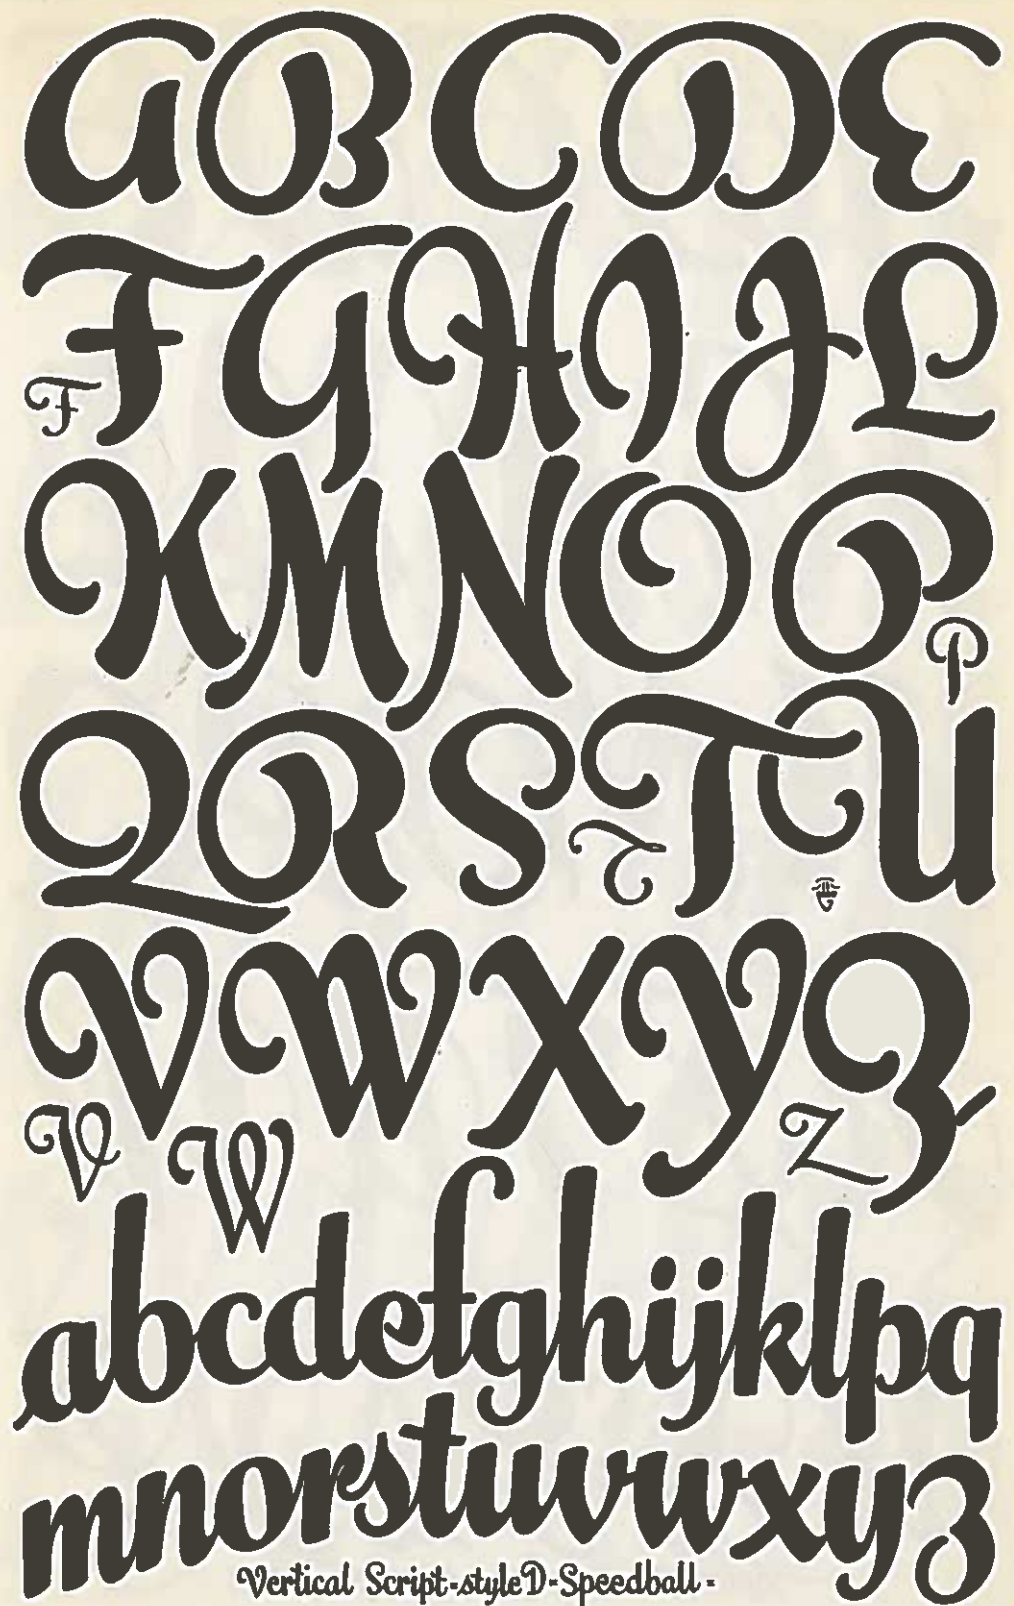 A B C D E
F G H I J L
F
K M N O P
P
Q R S T U
T
V W X Y Z
V W Z
abcdefghijklpq
mnorstuvwxyz
Vertical Script-style D-Speedball-